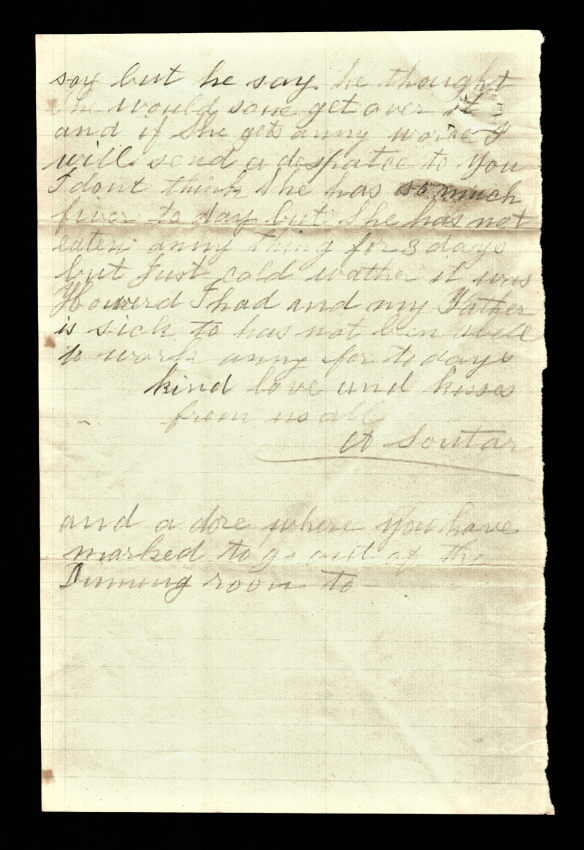 say but he say he thought
she would soue get over it
and if she gets anny worse I
will send a despatce to you
I dont think she has so much
fiver to day but she has not
eaten anny thing for 3 days
but Just cold wather it was
Howerd I had and my Father
is sick to has not ben well
to work anny for to days
kind love and kisses
from us all
A Soutar
and a dore where you have
marked to go out of the
Dinning room to